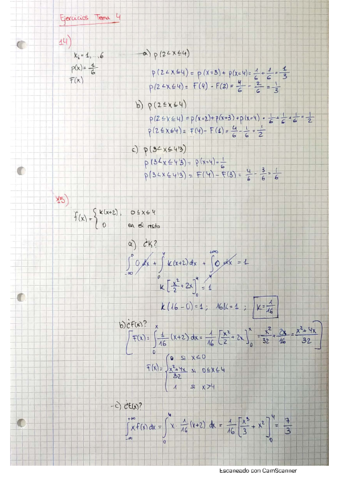 Ejercicios Tema 4
14)
xi = 1, ..6
p(xi) = 1/6
F(x)
→ a) p(2 < x ≤ 4)
p(2 < x ≤ 4) = p(x=3) + p(x=4) = 1/6 + 1/6 = 1/3
p(2 < x ≤ 4) = F(4) - F(2) = 4/6 - 2/6 = 1/3
b) p(2 ≤ x ≤ 4)
p(2 ≤ x ≤ 4) = p(x=2) + p(x=3) + p(x=4) = 1/6 + 1/6 + 1/6 = 1/2
p(2 ≤ x ≤ 4) = F(4) - F(1) = 4/6 - 1/6 = 1/2
c) p(3 < x ≤ 4'3)
p(3 < x ≤ 4'3) = p(x=4) = 1/6
p(3 < x ≤ 4'3) = F(4) - F(3) = 4/6 - 3/6 = 1/6
f(x) = { k(x+2), 0 ≤ x ≤ 4
0 en el resto
a) ¿k?
∫_{-∞}^{0} 0 dx + ∫_{0}^{4} k(x+2) dx + ∫_{4}^{+∞} 0 dx = 1
k [x²/2 + 2x]_{0}^{4} = 1
k(16 - 0) = 1; 16k = 1; k = 1/16
b) ¿F(x)?
[F(x) = ∫_{0}^{x} 1/16 (x+2) dx = 1/16 [x²/2 + 2x]_{0}^{x} = x²/32 + 2x/16 = (x² + 4x)/32]
F(x) = { 0 si x < 0
(x² + 4x)/32 si 0 ≤ x ≤ 4
1 si x > 4
- c) ¿E(x)?
∫_{-∞}^{+∞} x f(x) dx = ∫_{0}^{4} x · 1/16 (x+2) dx = 1/16 [x³/3 + x²]_{0}^{4} = 7/3
Escaneado con CamScanner